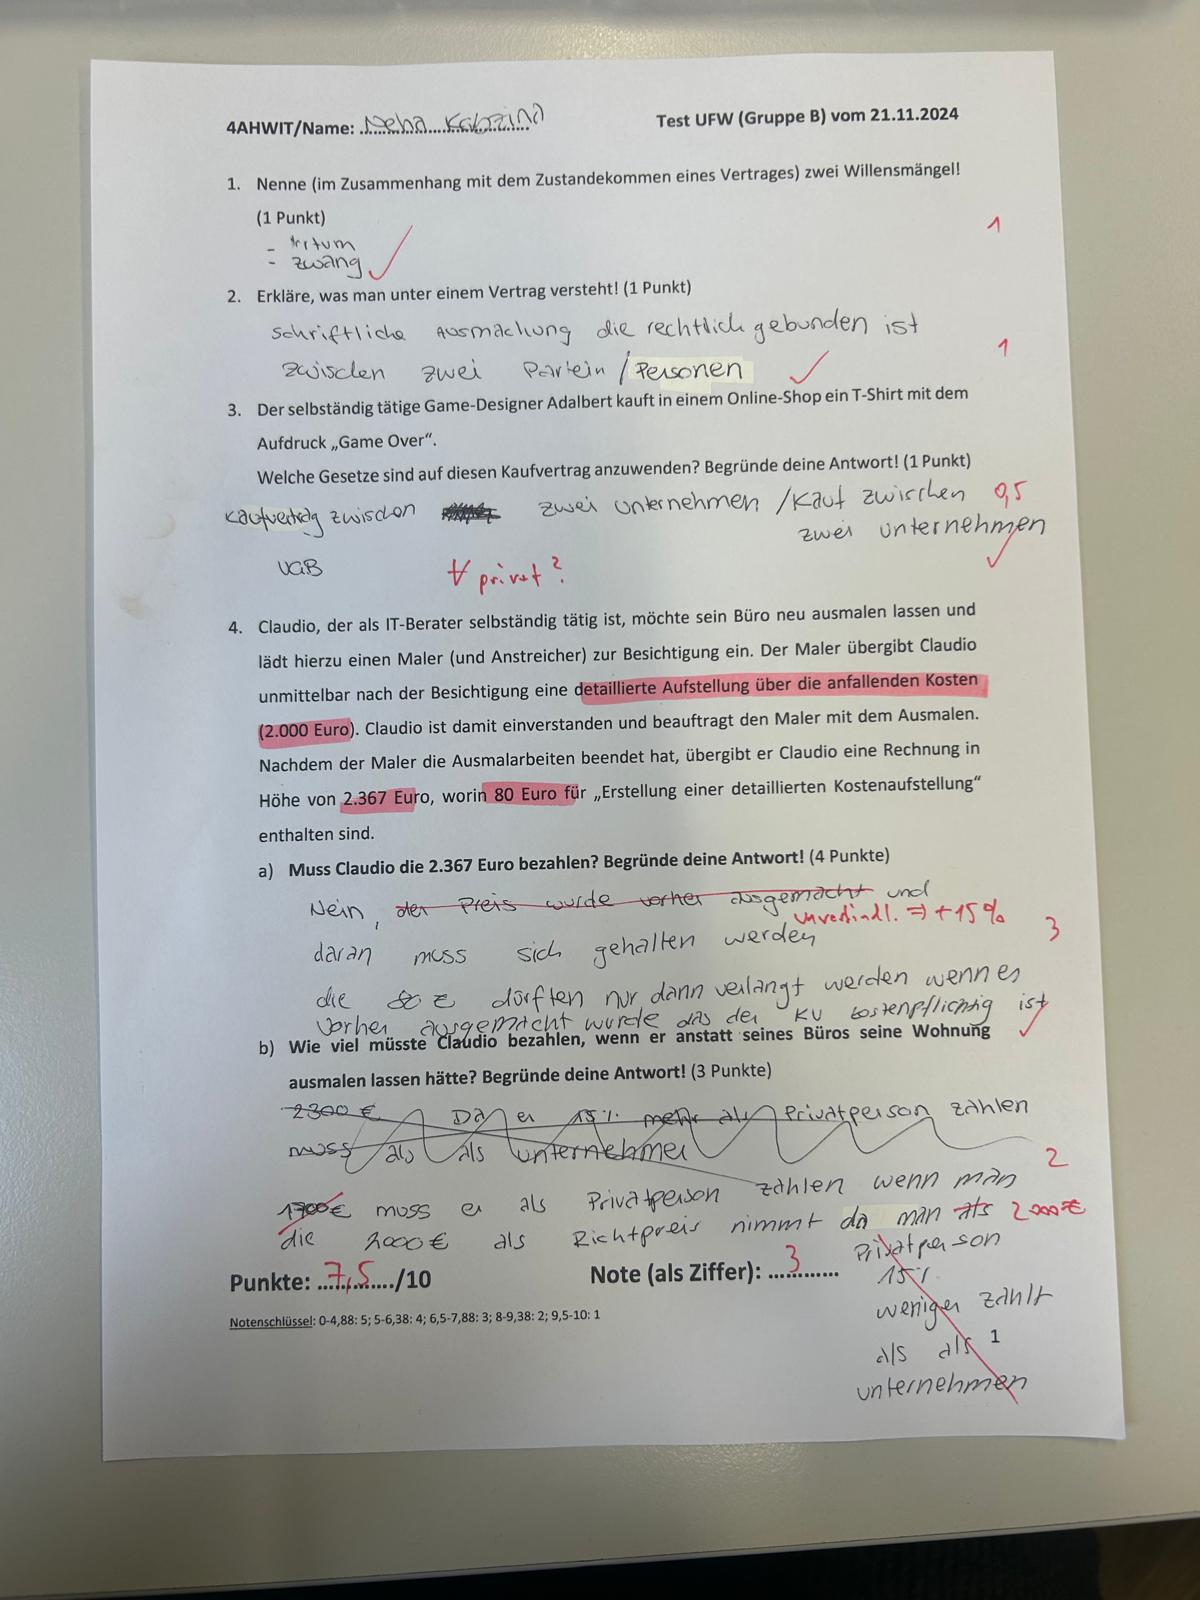 4AHWIT/Name: Neha Kabzind
Test UFW (Gruppe B) vom 21.11.2024
1. Nenne (im Zusammenhang mit dem Zustandekommen eines Vertrages) zwei Willensmängel!
(1 Punkt)
1
- Irrtum
- Zwang
2. Erkläre, was man unter einem Vertrag versteht! (1 Punkt)
schriftliche Ausmachung die rechtlich gebunden ist
1
zwischen zwei Partein / Personen
3. Der selbständig tätige Game-Designer Adalbert kauft in einem Online-Shop ein T-Shirt mit dem
Aufdruck „Game Over“.
Welche Gesetze sind auf diesen Kaufvertrag anzuwenden? Begründe deine Antwort! (1 Punkt)
Kaufvertrag zwischen zwei unternehmen / Kauf zwischen 0,5
zwei unternehmen
UGB
privat?
4. Claudio, der als IT-Berater selbständig tätig ist, möchte sein Büro neu ausmalen lassen und
lädt hierzu einen Maler (und Anstreicher) zur Besichtigung ein. Der Maler übergibt Claudio
unmittelbar nach der Besichtigung eine detaillierte Aufstellung über die anfallenden Kosten
(2.000 Euro). Claudio ist damit einverstanden und beauftragt den Maler mit dem Ausmalen.
Nachdem der Maler die Ausmalarbeiten beendet hat, übergibt er Claudio eine Rechnung in
Höhe von 2.367 Euro, worin 80 Euro für „Erstellung einer detaillierten Kostenaufstellung“
enthalten sind.
a) Muss Claudio die 2.367 Euro bezahlen? Begründe deine Antwort! (4 Punkte)
Nein, der Preis wurde vorher ausgemacht und
unverbindl. => +15%
daran muss sich gehalten werden
3
die 80 € dürften nur dann verlangt werden wenn es
vorher ausgemacht wurde das der KV kostenpflichtig ist
b) Wie viel müsste Claudio bezahlen, wenn er anstatt seines Büros seine Wohnung
ausmalen lassen hätte? Begründe deine Antwort! (3 Punkte)
2300 € Da er 15% mehr als Privatperson zahlen
muss als als unternehmer
2
1700€ muss er als Privatperson zahlen wenn man
die 2000€ als Richtpreis nimmt da man als 2000€
Privatperson
15%
weniger zahlt
als als
unternehmen
Punkte: 7,5/10
Note (als Ziffer): 3
Notenschlüssel: 0-4,88: 5; 5-6,38: 4; 6,5-7,88: 3; 8-9,38: 2; 9,5-10: 1
1